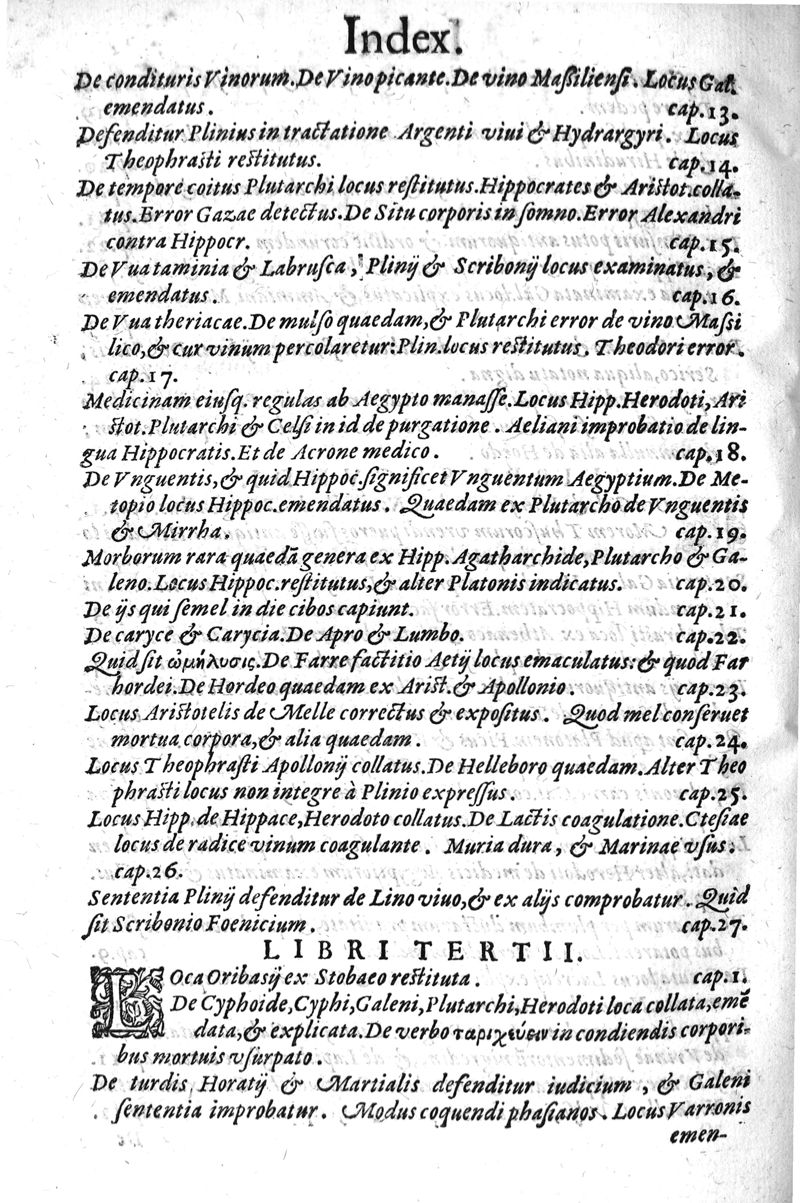 Index.
De condituris Vinorum. De Vino picante. De vino Maſſilienſi. Locus Gal.
emendatus. cap.13.
Defenditur Plinius in tractatione Argenti viui & Hydrargyri. Locus
Theophraſti reſtitutus. cap.14.
De tempore coitus Plutarchi locus reſtitutus. Hippocrates & Ariſtot.colla-
tus. Error Gazae detectus. De Situ corporis in ſomno. Error Alexandri
contra Hippocr. cap.15.
De Vua taminia & Labruſca, Plinij & Scribonij locus examinatus, &
emendatus. cap.16.
De Vua theriacae. De mulſo quaedam, & Plutarchi error de vino Maſſi
lico, & cur vinum percolaretur: Plin.locus reſtitutus. Theodori error.
cap.17.
Medicinam eiuſq. regulas ab Aegypto manaſſe. Locus Hipp. Herodoti, Ari
ſtot. Plutarchi & Celſi in id de purgatione. Aeliani improbatio de lin-
gua Hippocratis. Et de Acrone medico. cap.18.
De Vnguentis, & quid Hippoc. ſignificet Vnguentum Aegyptium. De Me-
topio locus Hippoc. emendatus. Quaedam ex Plutarcho de Vnguentis
& Mirrha. cap.19.
Morborum rara quaedā genera ex Hipp. Agatharchide, Plutarcho & Ga-
leno. Locus Hippoc. reſtitutus, & alter Platonis indicatus. cap.20.
De ijs qui ſemel in die cibos capiunt. cap.21.
De caryce & Carycia. De Apro & Lumbo. cap.22.
Quid ſit ὠμήλυσις. De Farre factitio Aetij locus emaculatus: & quod Far
hordei. De Hordeo quaedam ex Ariſt. & Apollonio. cap.23.
Locus Ariſtotelis de Melle correctus & expoſitus. Quod mel conſeruet
mortua corpora, & alia quaedam. cap.24.
Locus Theophraſti Apollonij collatus. De Helleboro quaedam. Alter Theo
phraſti locus non integre à Plinio expreſſus. cap.25.
Locus Hipp. de Hippace, Herodoto collatus. De Lactis coagulatione. Cteſiae
locus de radice vinum coagulante. Muria dura, & Marinae vſus.
cap.26.
Sententia Plinij defenditur de Lino viuo, & ex alijs comprobatur. Quid
ſit Scribonio Foenicium. cap.27.
LIBRI TERTII.
LOca Oribasij ex Stobaeo reſtituta. cap.1.
De Cyphoide, Cyphi, Galeni, Plutarchi, Herodoti loca collata, emē
data, & explicata. De verbo ταριχεύειν in condiendis corpori-
bus mortuis vſurpato.
De turdis Horatij & Martialis defenditur iudicium, & Galeni
ſententia improbatur. Modus coquendi phaſianos. Locus Varronis
emen-